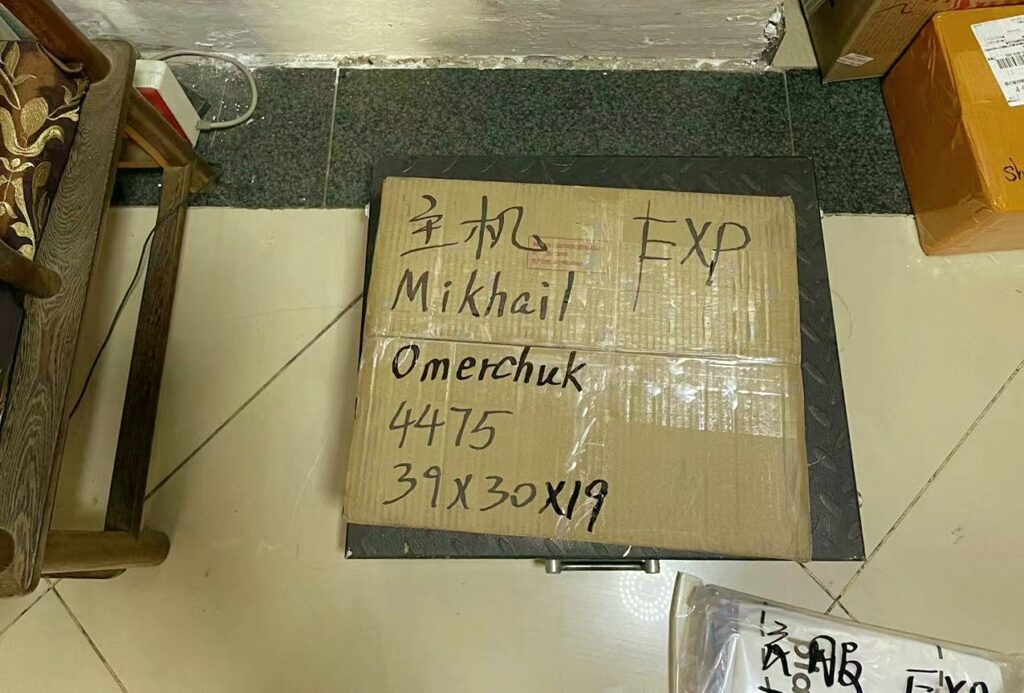 主机 EXP
Mikhail
Omerchuk
4475
39X30X19
sh
服